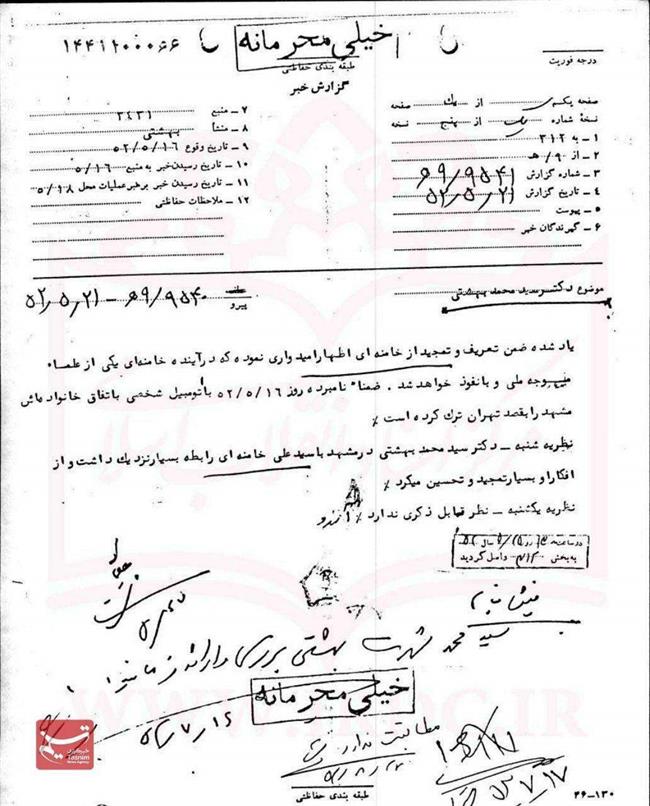 ۱۴۴۱۲۰۰۰۶۶
خیلی محرمانه
طبقه بندی حفاظتی
گزارش خبر
درجه فوریت
صفحه یکم از یک صفحه
نسخهٔ شماره یک از پنج نسخه
۱ ـ به ۳۱۲
۲ ـ از ۹۰/ ﻫ
۳ ـ شماره گزارش ۹۵۴۱/ﻫ۹
۴ ـ تاریخ گزارش ۵۲٫۵٫۲۱
۵ ـ پیوست
۶ ـ گیرندگان خبر
۷ ـ منبع ۲۴۳۱
۸ ـ منشأ بهشتی
۹ ـ تاریخ وقوع ۵۲/۵/۱۶
۱۰ ـ تاریخ رسیدن خبر به منبع ۵/۱۶
۱۱ ـ تاریخ رسیدن خبر به رهبر عملیات محل ۵/۱۸
۱۲ ـ ملاحظات حفاظتی
موضوع دکتر سید محمد بهشتی
پیرو ۹۵۴۰/ﻫ۹ – ۵۲٫۵٫۲۱
یاد شده ضمن تعریف و تمجید از خامنه ای اظهار امیدواری نموده که در آینده خامنه ای یکی از علماء
موجه ملی و با نفوذ خواهد شد . ضمناً نامبرده روز ۵۲/۵/۱۶ با اتومبیل شخصی باتفاق خانواده اش
مشهد را بقصد تهران ترک کرده است ٪
نظریه شنبه ـ دکتر سید محمد بهشتی در مشهد با سید علی خامنه ای رابطه بسیار نزدیک داشت و از
افکار او بسیار تمجید و تحسین میکرد ٪
نظریه یکشنبه ـ نظر قابل ذکری ندارد ٪
در ساعت روز سال
به بخش ۳۱۲ واصل گردید
سید محمد شهرت بهشتی بررسی و ارائه فرمائید
خیلی محرمانه
۵۲٫۷٫۱۶
۵۲٫۷٫۱۷
طبقه بندی حفاظتی
۲۶-۱۳۰
تسنیم
خبرگزاری
Tasnim
News Agency
WWW.IRDC.IR